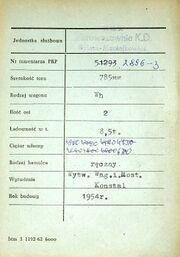 Jednostka służbowa
Nr inwentarza PKP 51293 2886-3
Szerokość toru 785mm
Rodzaj wagonu Wh
Ilość osi 2
Ładowność w t. 8,5t.
Ciężar własny
Rodzaj hamulca ręczny
Wytwórnia Wytw. Wag.i.Most.
Konstal
Rok budowy 1954r.